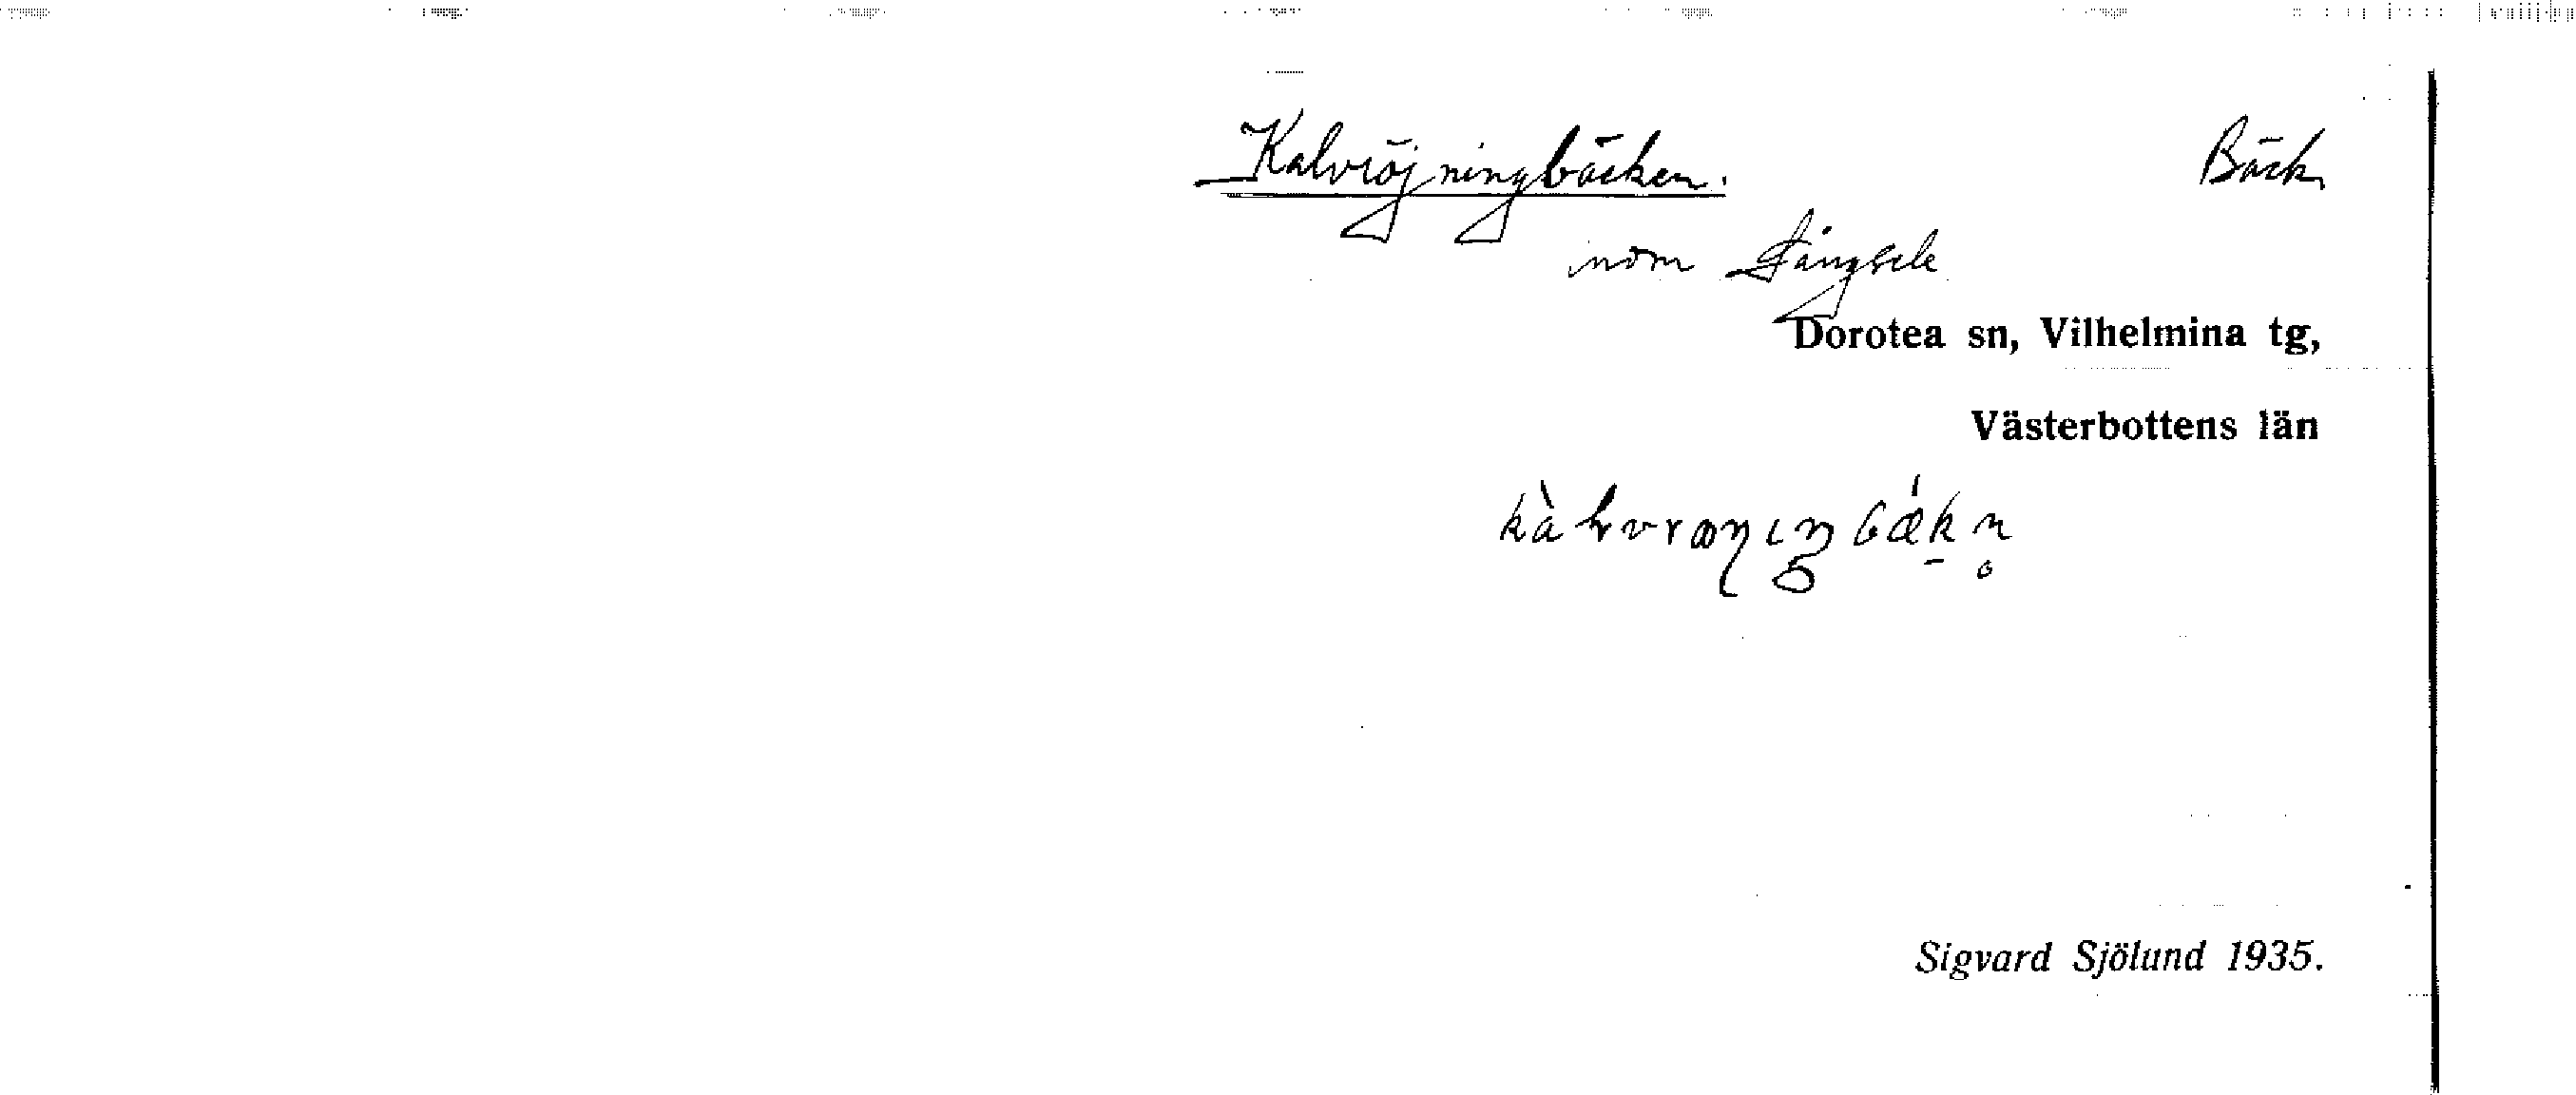 Kalvröjningbäcken. Bäck
inom Långsele
Dorotea sn, Vilhelmina tg,
Västerbottens län
Sigvard Sjölund 1935.